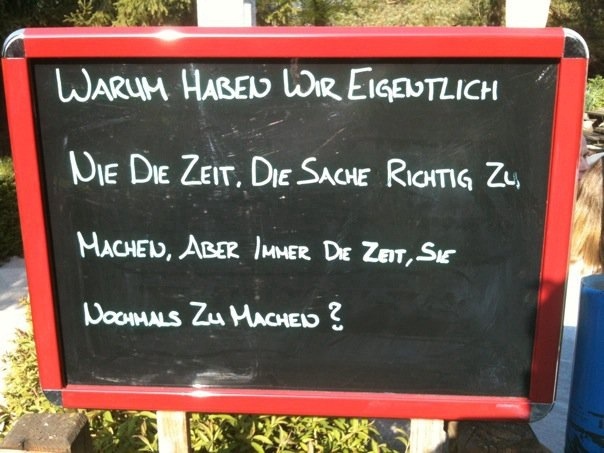 WARUM HABEN WIR EIGENTLICH
NIE DIE ZEIT, DIE SACHE RICHTIG ZU
MACHEN, ABER IMMER DIE ZEIT, SIE
NOCHMALS ZU MACHEN?